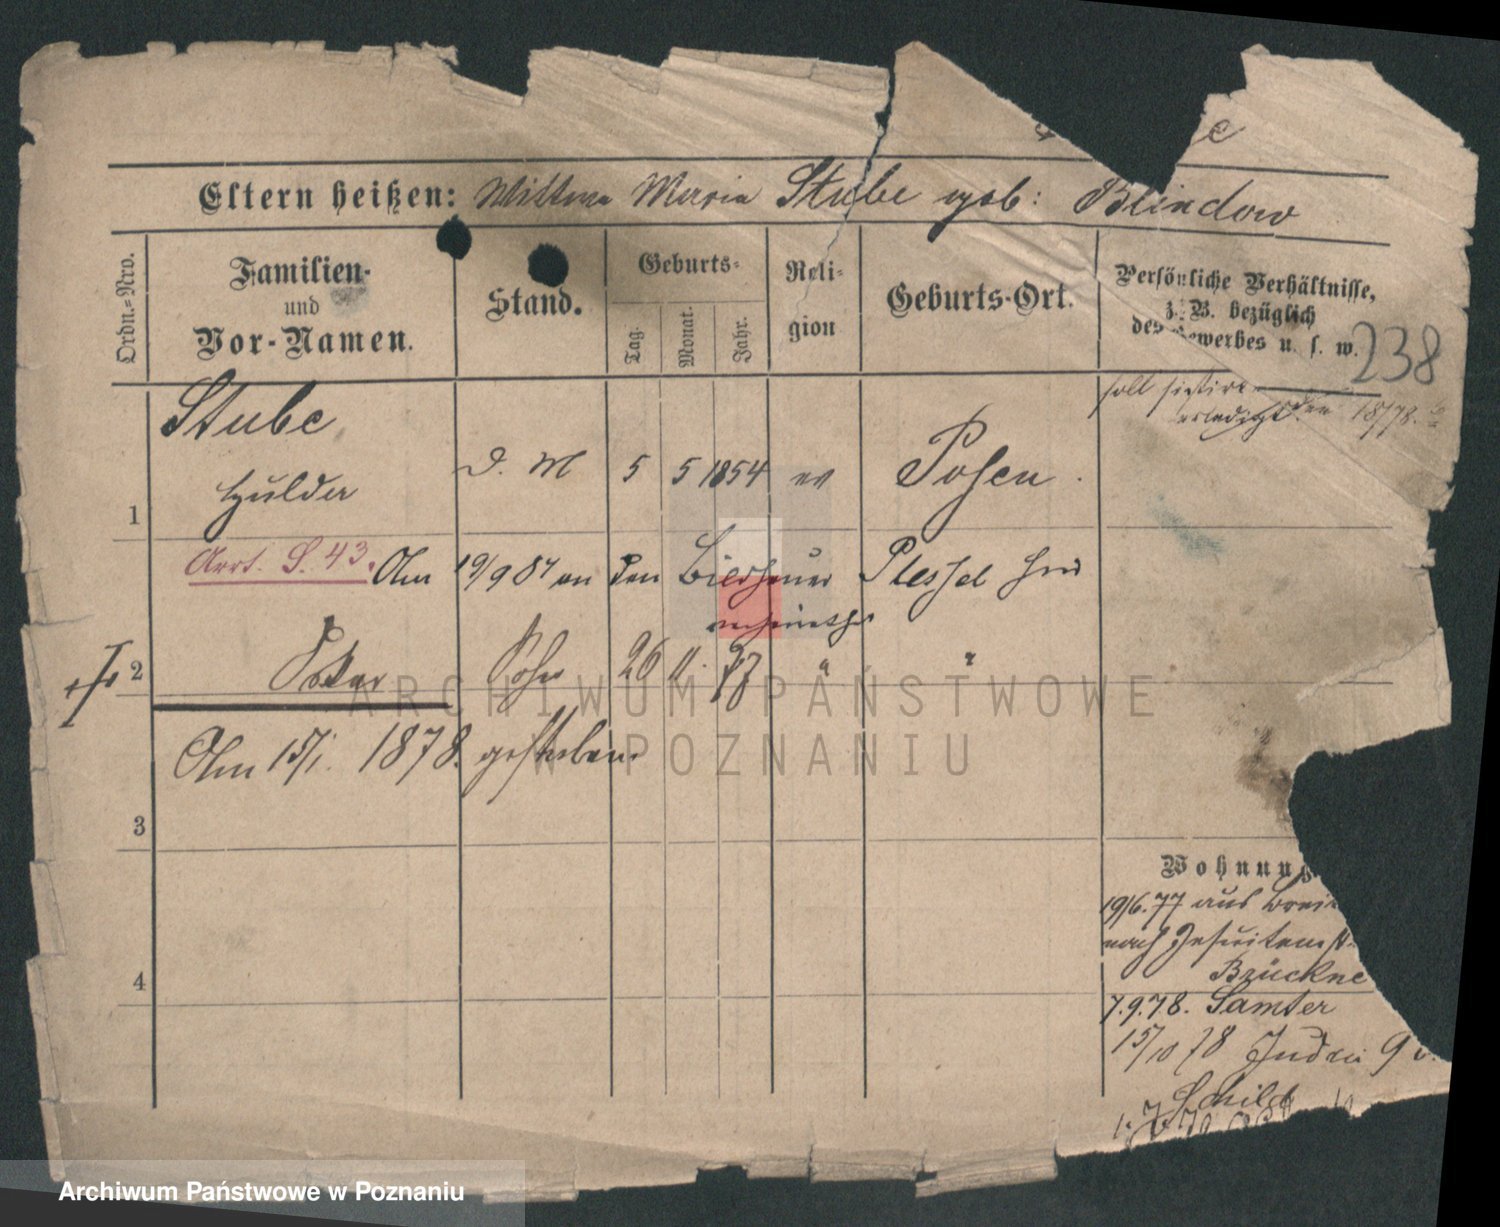 Eltern heißen: Wittwe Maria Stube geb: Blindow
Ordn.=Nro.
Familien-
und
Vor-Namen.
Stand.
Geburts-
Tag.
Monat.
Jahr.
Reli-
gion
Geburts-Ort.
Persönliche Verhältnisse,
z. B. bezüglich
des Gewerbes u. s. w.
238
soll
erledigt. den 18/78.
Stube
1 Hulda D. M 5 5 1854 ev Posen.
S. 43. Am 19/9 84 an den Bildhauer Plessel
2 Oskar Sohn 26 11. 77 " "
Am 15/1. 1878. gestorben
3
4
Wohnung
19/6.77 aus Brei
nach Jesuitenst
Brückne
7.9.78. Samter
15/10 78 Juden 9
Schild
ARCHIWUM PAŃSTWOWE
W POZNANIU
Archiwum Państwowe w Poznaniu